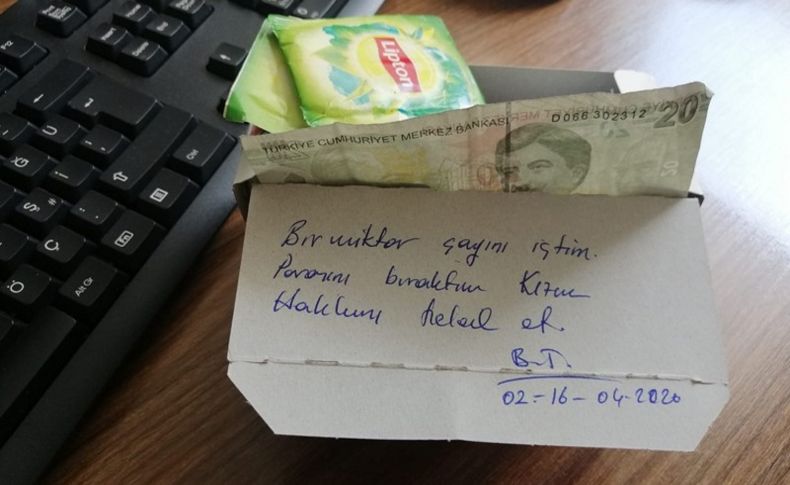 Lipton
TÜRKİYE CUMHURİYET MERKEZ BANKASI
D066 302312
20
20
Bir miktar çayını içtim.
Parasını bıraktım Kızım
Hakkını helal et.
B.T.
02-16-04-2020
Alt Gr
Fn
Ctrl
Ç
Ö
Ü
Ğ
Ş